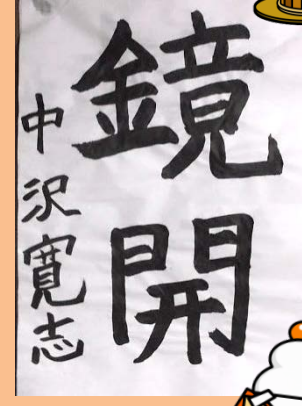 鏡開
中沢寛志